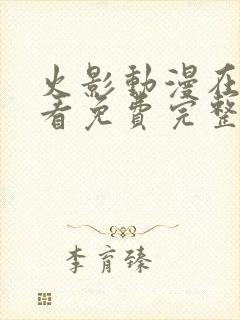 火影動漫在
看免費完整
李育臻